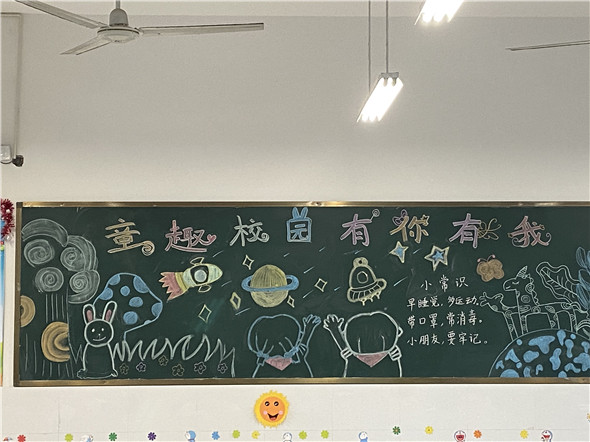 童趣校园有你有我
小常识
早睡觉,多运动。
带口罩,常消毒。
小朋友,要牢记。